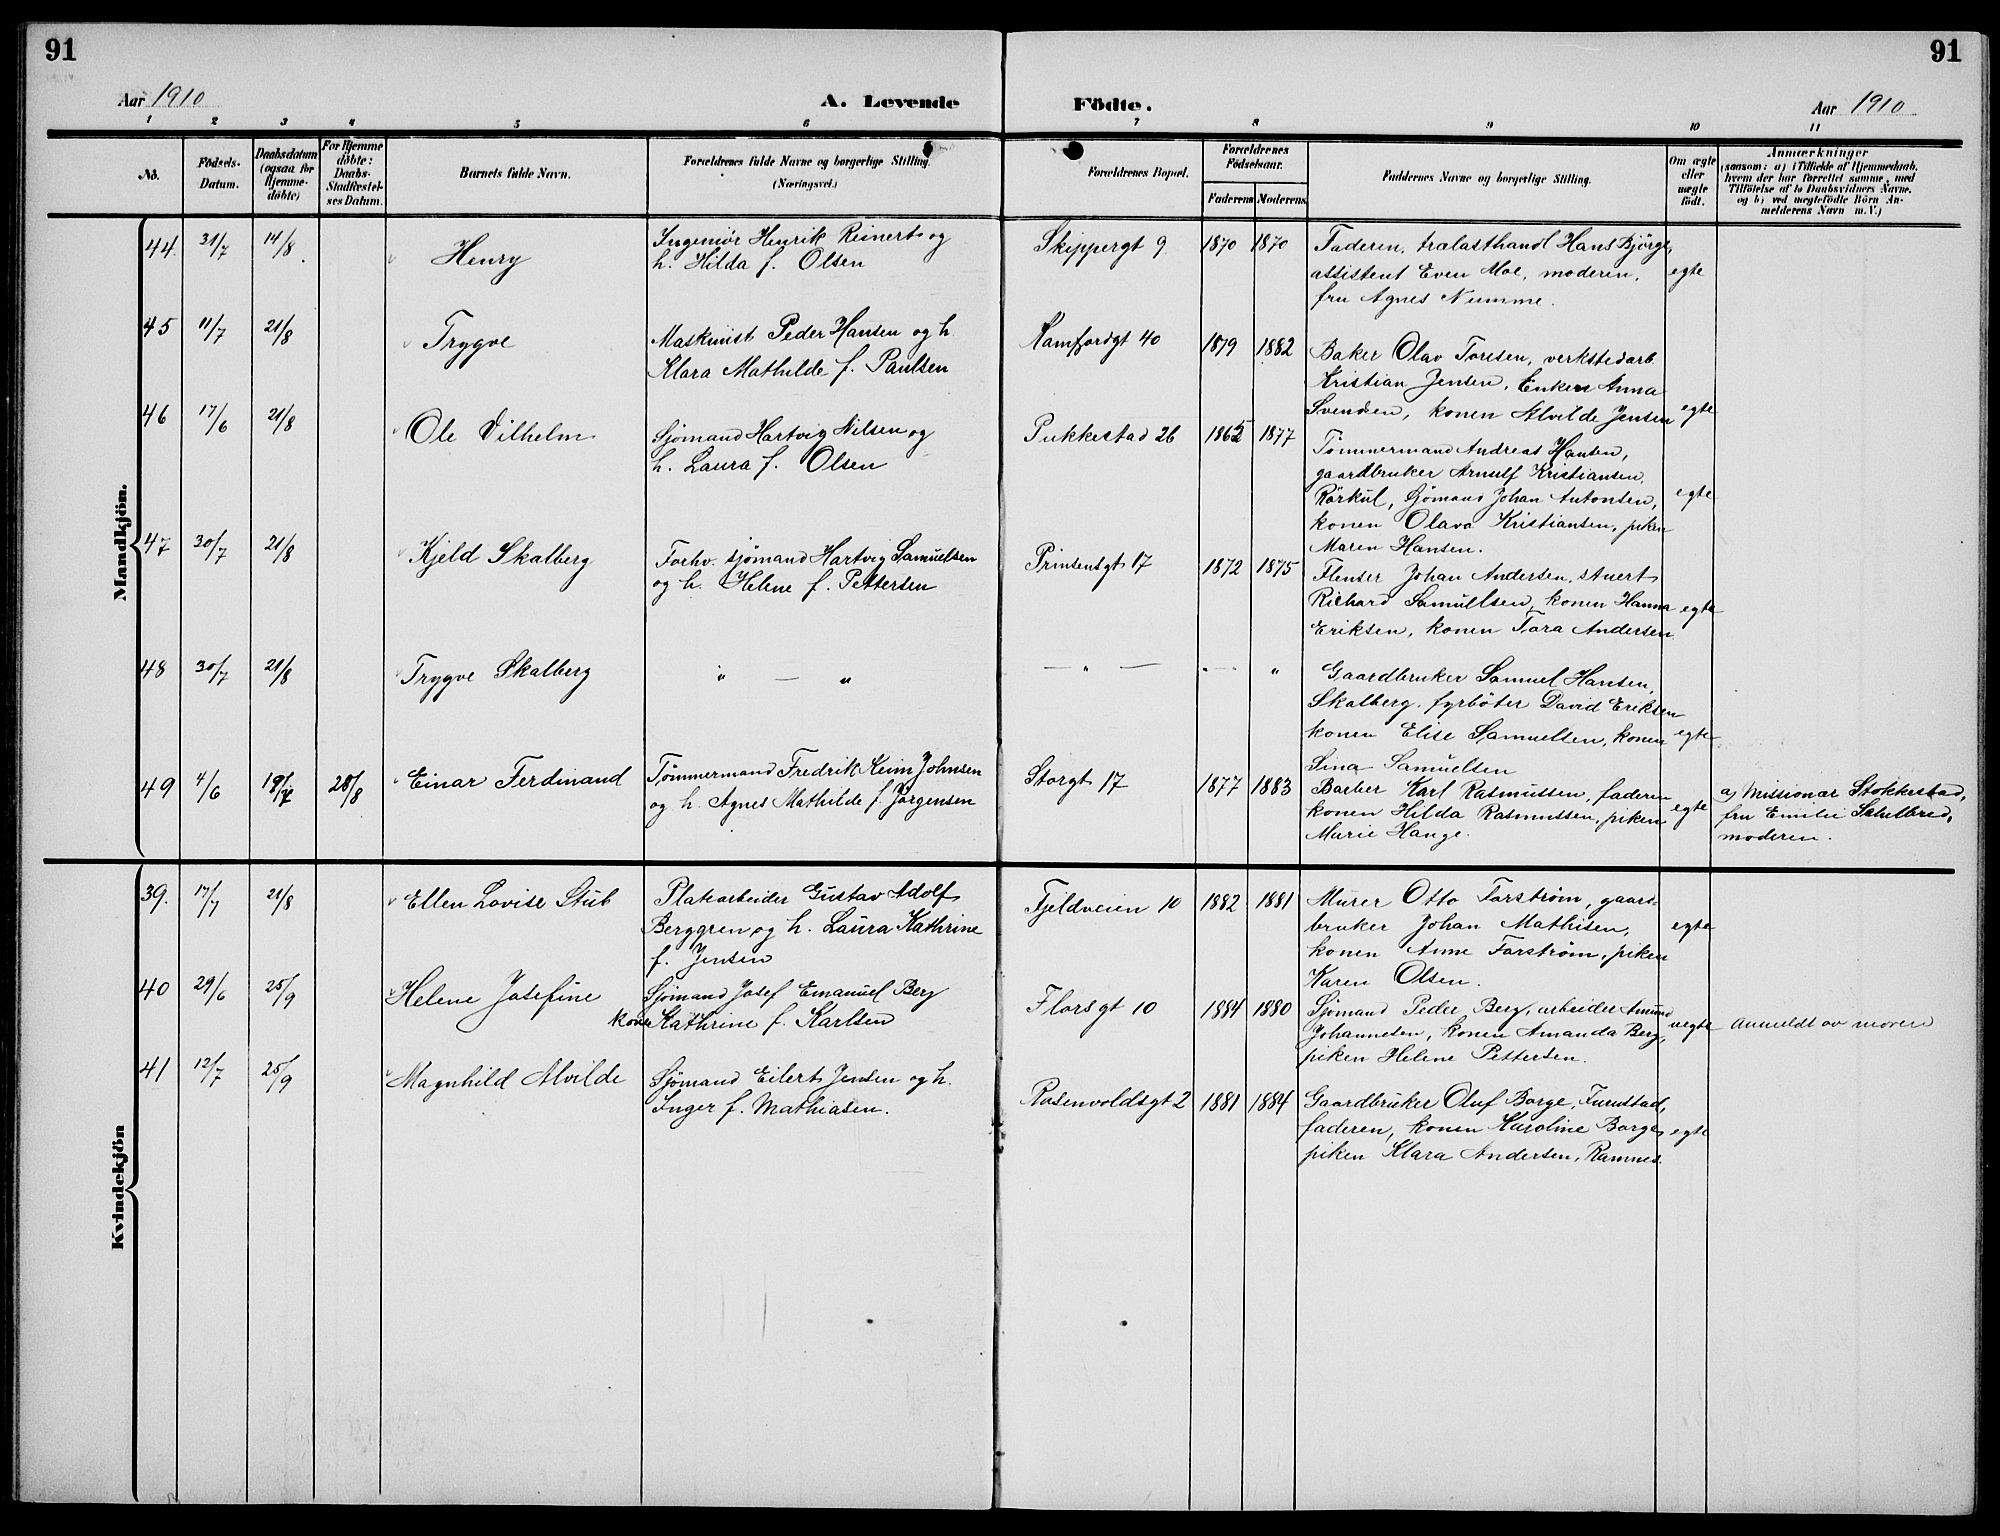 91
91
Aar 1910
A. Levende
Födte.
Aar 1910
1 2 3 4 5 6 7 8 9 10 11
No.
Födsels-Datum.
Daabsdatum (ogsaa for Hjemme-döbte)
For Hjemme döbte: Daabs-Stadfæstel-ses Datum.
Barnets fulde Navn.
Forældrenes fulde Navne og borgerlige Stilling. (Næringsvei.)
Forældrenes Bopæl.
Forældrenes Födselsaar.
Faderens Moderens
Faddernes Navne og borgerlige Stilling.
Om ægte eller uægte födt.
Anmærkninger
(saasom: a) i Tilfælde af Hjemmedaab,
hvem der har forrettet samme, med
Tilföielse af to Daabsvidners Navne.
og b) ved uægtefödte Börn An-
melderens Navn m.V.)
Mandkjön.
44 31/7 14/8 Henry
Ingeniør Henrik Reinert og
h. Hilda f. Olsen
Skippergt 9 1870 1870
Faderen, trælasthandl Hans Bjørge,
assistent Even Moe, moderen,
fru Agnes Numme.
egte
45 11/7 21/8 Trygve
Maskinist Peder Hansen og h.
Klara Mathilde f. Paulsen
Kamfjordgt 40 1879 1882
Baker Olav Toresen, verkstedarb.
Kristian Jensen, Enken Anna
Svendsen, konen Alvilde Jensen
egte
46 17/6 21/8 Ole Vilhelm
Sjømand Hartvig Nilsen og
h. Laura f. Olsen
Pukkestad 26 1865 1877
Tømmermand Andreas Hansen,
gaardbruker Arnulf Kristiansen,
Rörkul, Sjømand Johan Antonsen,
konen Olava Kristiansen, piken
Maren Hansen.
egte
47 30/7 21/8 Kjeld Skalberg
Forhv. sjømand Hartvig Samuelsen
og h. Helene f. Pettersen
Prinsensgt 17 1872 1875
Flenser Johan Andersen, stuert
Richard Samuelsen, konen Hanna
Eriksen, konen Tora Andersen
egte
48 30/7 21/8 Trygve Skalberg
" — "
— " —
" — "
Gaardbruker Samuel Hansen,
Skalberg, fyrbøter David Eriksen
konen Elise Samuelsen, konen
Sina Samuelsen
egte
49 4/6 19/7 28/8 Einar Ferdinand
Tømmermand Fredrik Keim Johnsen
og h. Agnes Mathilde f. Jørgensen
Storgt 17 1877 1883
Barber Karl Rasmussen, faderen
konen Hilda Rasmussen, piken
Marie Hauge.
egte
a) Missionær Stokkestad,
fru Emilie
moderen.
Kvindekjön
39. 17/7 21/8 Ellen Lovise Stub
Platearbeider Gustav Adolf
Berggren og h. Laura Kathrine
f. Jensen
Fjeldveien 10 1882 1881
Murer Otto Farstrøm, gaard-
bruker Johan Mathisen,
konen Anne Farstrøm, piken
Karen Olsen.
egte
40 29/6 25/9 Helene Josefine
Sjømand Josef Emanuel Berg
kone Kathrine f. Karlsen
Florsgt 10 1884 1880
Sjømand Peder Berg, arbeider Amund
Johannesen, konen Amanda Berg,
piken Helene Pettersen.
uegte
Anmeldt av moren
41 12/7 25/9 Magnhild Alvilde
Sjømand Eilert Jensen og h.
Inger f. Mathiasen.
Rosenvoldsgt 2 1881 1884
Gaardbruker Oluf Borge, Furustad,
faderen, konen Karoline Borge,
piken Klara Andersen, Ramnes.
egte